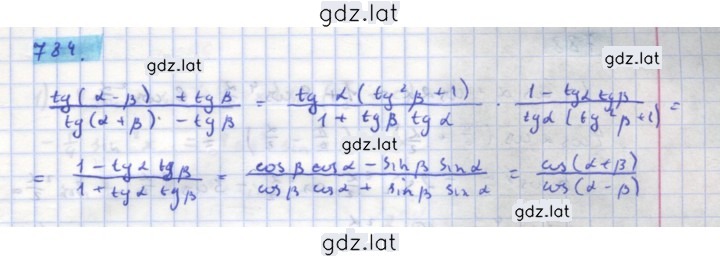 gdz.lat
784.
gdz.lat
gdz.lat
(tg(α-β) + tgβ)/(tg(α+β) - tgβ) = (tg α (tg²β+1))/(1 + tgβ tgα) · (1 - tgα tgβ)/(tgα (tg²β+1)) =
gdz.lat
= (1 - tgα tgβ)/(1 + tgα tgβ) = (cosβ cosα - sinβ sinα)/(cosβ cosα + sinβ sinα) = cos(α+β)/cos(α-β)
gdz.lat
gdz.lat